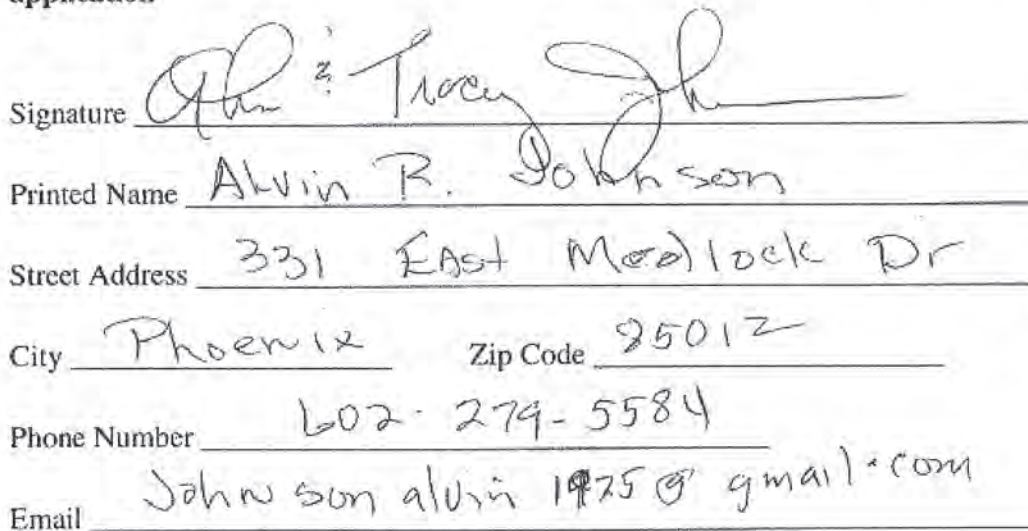 application
Signature & Tracy
Printed Name Alvin R. Johnson
Street Address 331 East Medlock Dr
City Phoenix Zip Code 85012
Phone Number 602-279-5584
Email Johnsonalvin1925@gmail.com